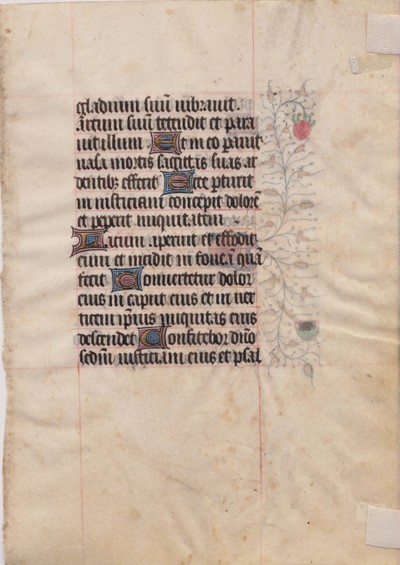 gladium suū uibrauit.
arcum suū tetendit et para
uit illum Et in eo parauit
uasa mortis sagittas suas ar
dentibz effecit Ecce pturit
in iusticiam concepit dolorē
et peperit iniquitatem
Lacum aperuit et effodit
eum et incidit in foueā quā
fecit Conuertetur dolor
eius in caput eius et in uer
ticem ipsius iniquitas eius
descendet Confitebor dn̄o
sedm̄ iusticiam eius et psal